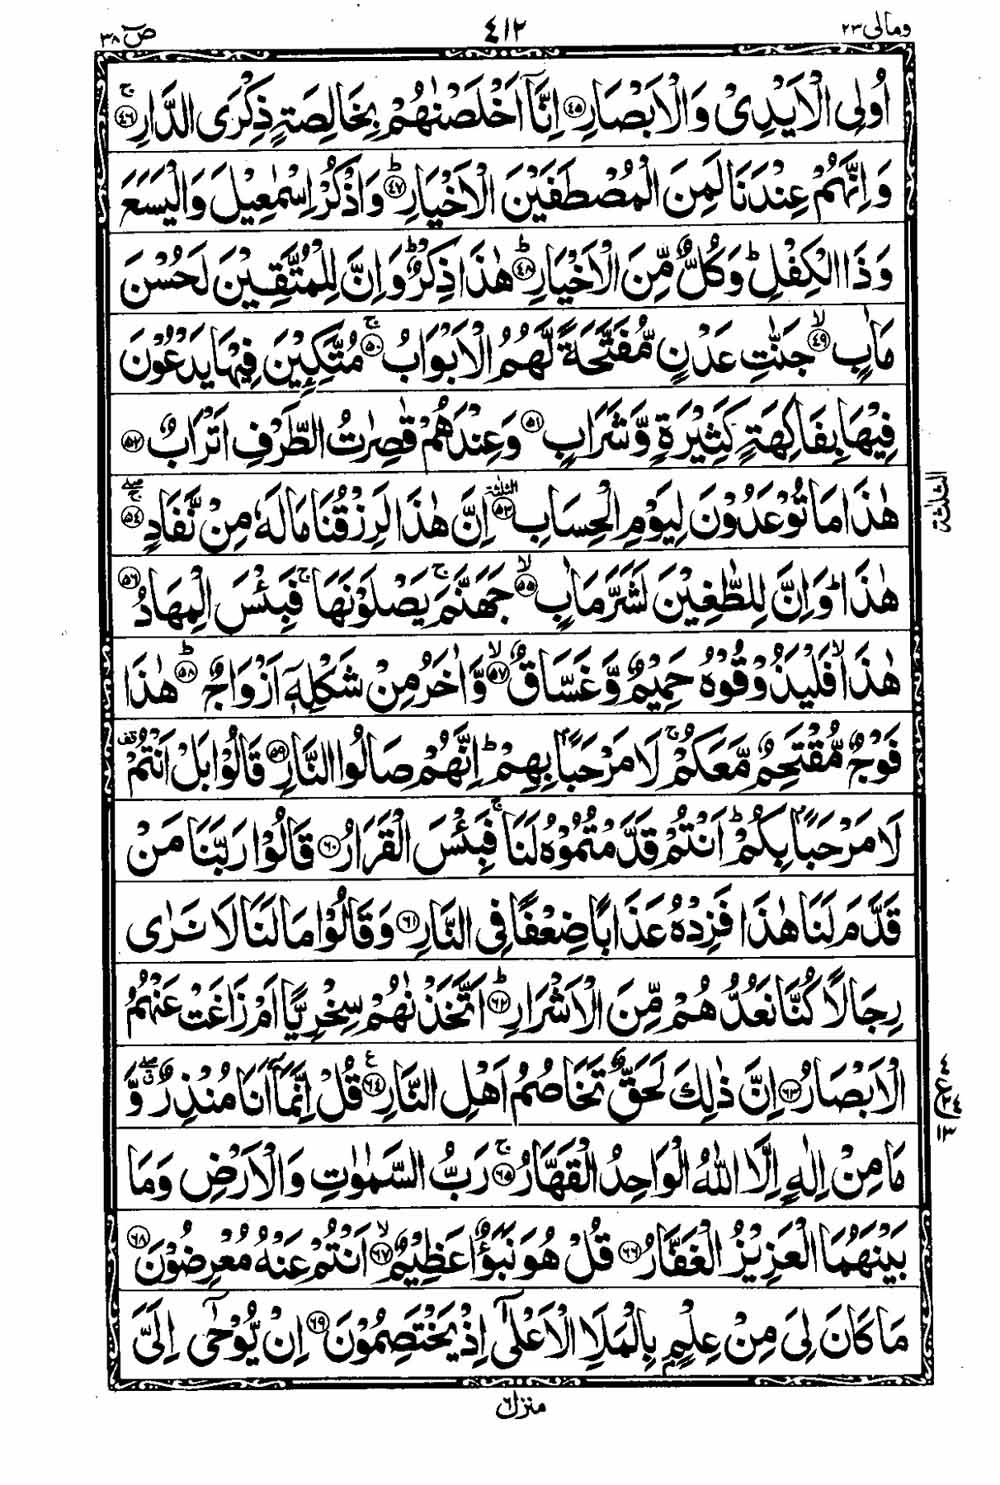 ومالی ٢٣ ٤١٢ صٓ ٣٨
اُولِی الْاَیْدِیْ وَالْاَبْصَارِ ﴿٤٥﴾ اِنَّاۤ اَخْلَصْنٰهُمْ بِخَالِصَةٍ ذِكْرَی الدَّارِ ۚ﴿٤٦﴾
وَاِنَّهُمْ عِنْدَنَا لَمِنَ الْمُصْطَفَیْنَ الْاَخْیَارِ ؕ﴿٤٧﴾ وَاذْكُرْ اِسْمٰعِیْلَ وَالْیَسَعَ
وَذَا الْكِفْلِ ؕ وَكُلٌّ مِّنَ الْاَخْیَارِ ؕ﴿٤٨﴾ هٰذَا ذِكْرٌ ؕ وَاِنَّ لِلْمُتَّقِیْنَ لَحُسْنَ
مَاٰبٍ ۙ﴿٤٩﴾ جَنّٰتِ عَدْنٍ مُّفَتَّحَةً لَّهُمُ الْاَبْوَابُ ۚ﴿٥٠﴾ مُتَّكِـِٕیْنَ فِیْهَا یَدْعُوْنَ
فِیْهَا بِفَاكِهَةٍ كَثِیْرَةٍ وَّشَرَابٍ ﴿٥١﴾ وَعِنْدَهُمْ قٰصِرٰتُ الطَّرْفِ اَتْرَابٌ ﴿٥٢﴾
هٰذَا مَا تُوْعَدُوْنَ لِیَوْمِ الْحِسَابِ ﴿٥٣﴾ الثلٰثة اِنَّ هٰذَا لَرِزْقُنَا مَا لَهٗ مِنْ نَّفَادٍ ۖۚ﴿٥٤﴾
الثلٰثة
هٰذَا ؕ وَاِنَّ لِلطّٰغِیْنَ لَشَرَّ مَاٰبٍ ۙ﴿٥٥﴾ جَهَنَّمَ ۚ یَصْلَوْنَهَا ۚ فَبِئْسَ الْمِهَادُ ﴿٥٦﴾
هٰذَا ۙ فَلْیَذُوْقُوْهُ حَمِیْمٌ وَّغَسَّاقٌ ۙ﴿٥٧﴾ وَّاٰخَرُ مِنْ شَكْلِهٖۤ اَزْوَاجٌ ؕ﴿٥٨﴾ هٰذَا
فَوْجٌ مُّقْتَحِمٌ مَّعَكُمْ ۚ لَا مَرْحَبًۢا بِهِمْ ؕ اِنَّهُمْ صَالُوا النَّارِ ﴿٥٩﴾ قَالُوْا بَلْ اَنْتُمْ قف
لَا مَرْحَبًۢا بِكُمْ ؕ اَنْتُمْ قَدَّمْتُمُوْهُ لَنَا ۚ فَبِئْسَ الْقَرَارُ ﴿٦٠﴾ قَالُوْا رَبَّنَا مَنْ
قَدَّمَ لَنَا هٰذَا فَزِدْهُ عَذَابًا ضِعْفًا فِی النَّارِ ﴿٦١﴾ وَقَالُوْا مَا لَنَا لَا نَرٰی
رِجَالًا كُنَّا نَعُدُّهُمْ مِّنَ الْاَشْرَارِ ؕ﴿٦٢﴾ اَتَّخَذْنٰهُمْ سِخْرِیًّا اَمْ زَاغَتْ عَنْهُمُ
الْاَبْصَارُ ﴿٦٣﴾ اِنَّ ذٰلِكَ لَحَقٌّ تَخَاصُمُ اَهْلِ النَّارِ ﴿٦٤﴾ ع قُلْ اِنَّمَاۤ اَنَا مُنْذِرٌ ۖق وَّ
ع
مَا مِنْ اِلٰهٍ اِلَّا اللّٰهُ الْوَاحِدُ الْقَهَّارُ ۚ﴿٦٥﴾ رَبُّ السَّمٰوٰتِ وَالْاَرْضِ وَمَا
بَیْنَهُمَا الْعَزِیْزُ الْغَفَّارُ ﴿٦٦﴾ قُلْ هُوَ نَبَؤٌا عَظِیْمٌ ۙ﴿٦٧﴾ اَنْتُمْ عَنْهُ مُعْرِضُوْنَ ﴿٦٨﴾
مَا كَانَ لِیَ مِنْ عِلْمٍۭ بِالْمَلَاِ الْاَعْلٰۤی اِذْ یَخْتَصِمُوْنَ ﴿٦٩﴾ اِنْ یُّوْحٰۤی اِلَیَّ
منزل ٦